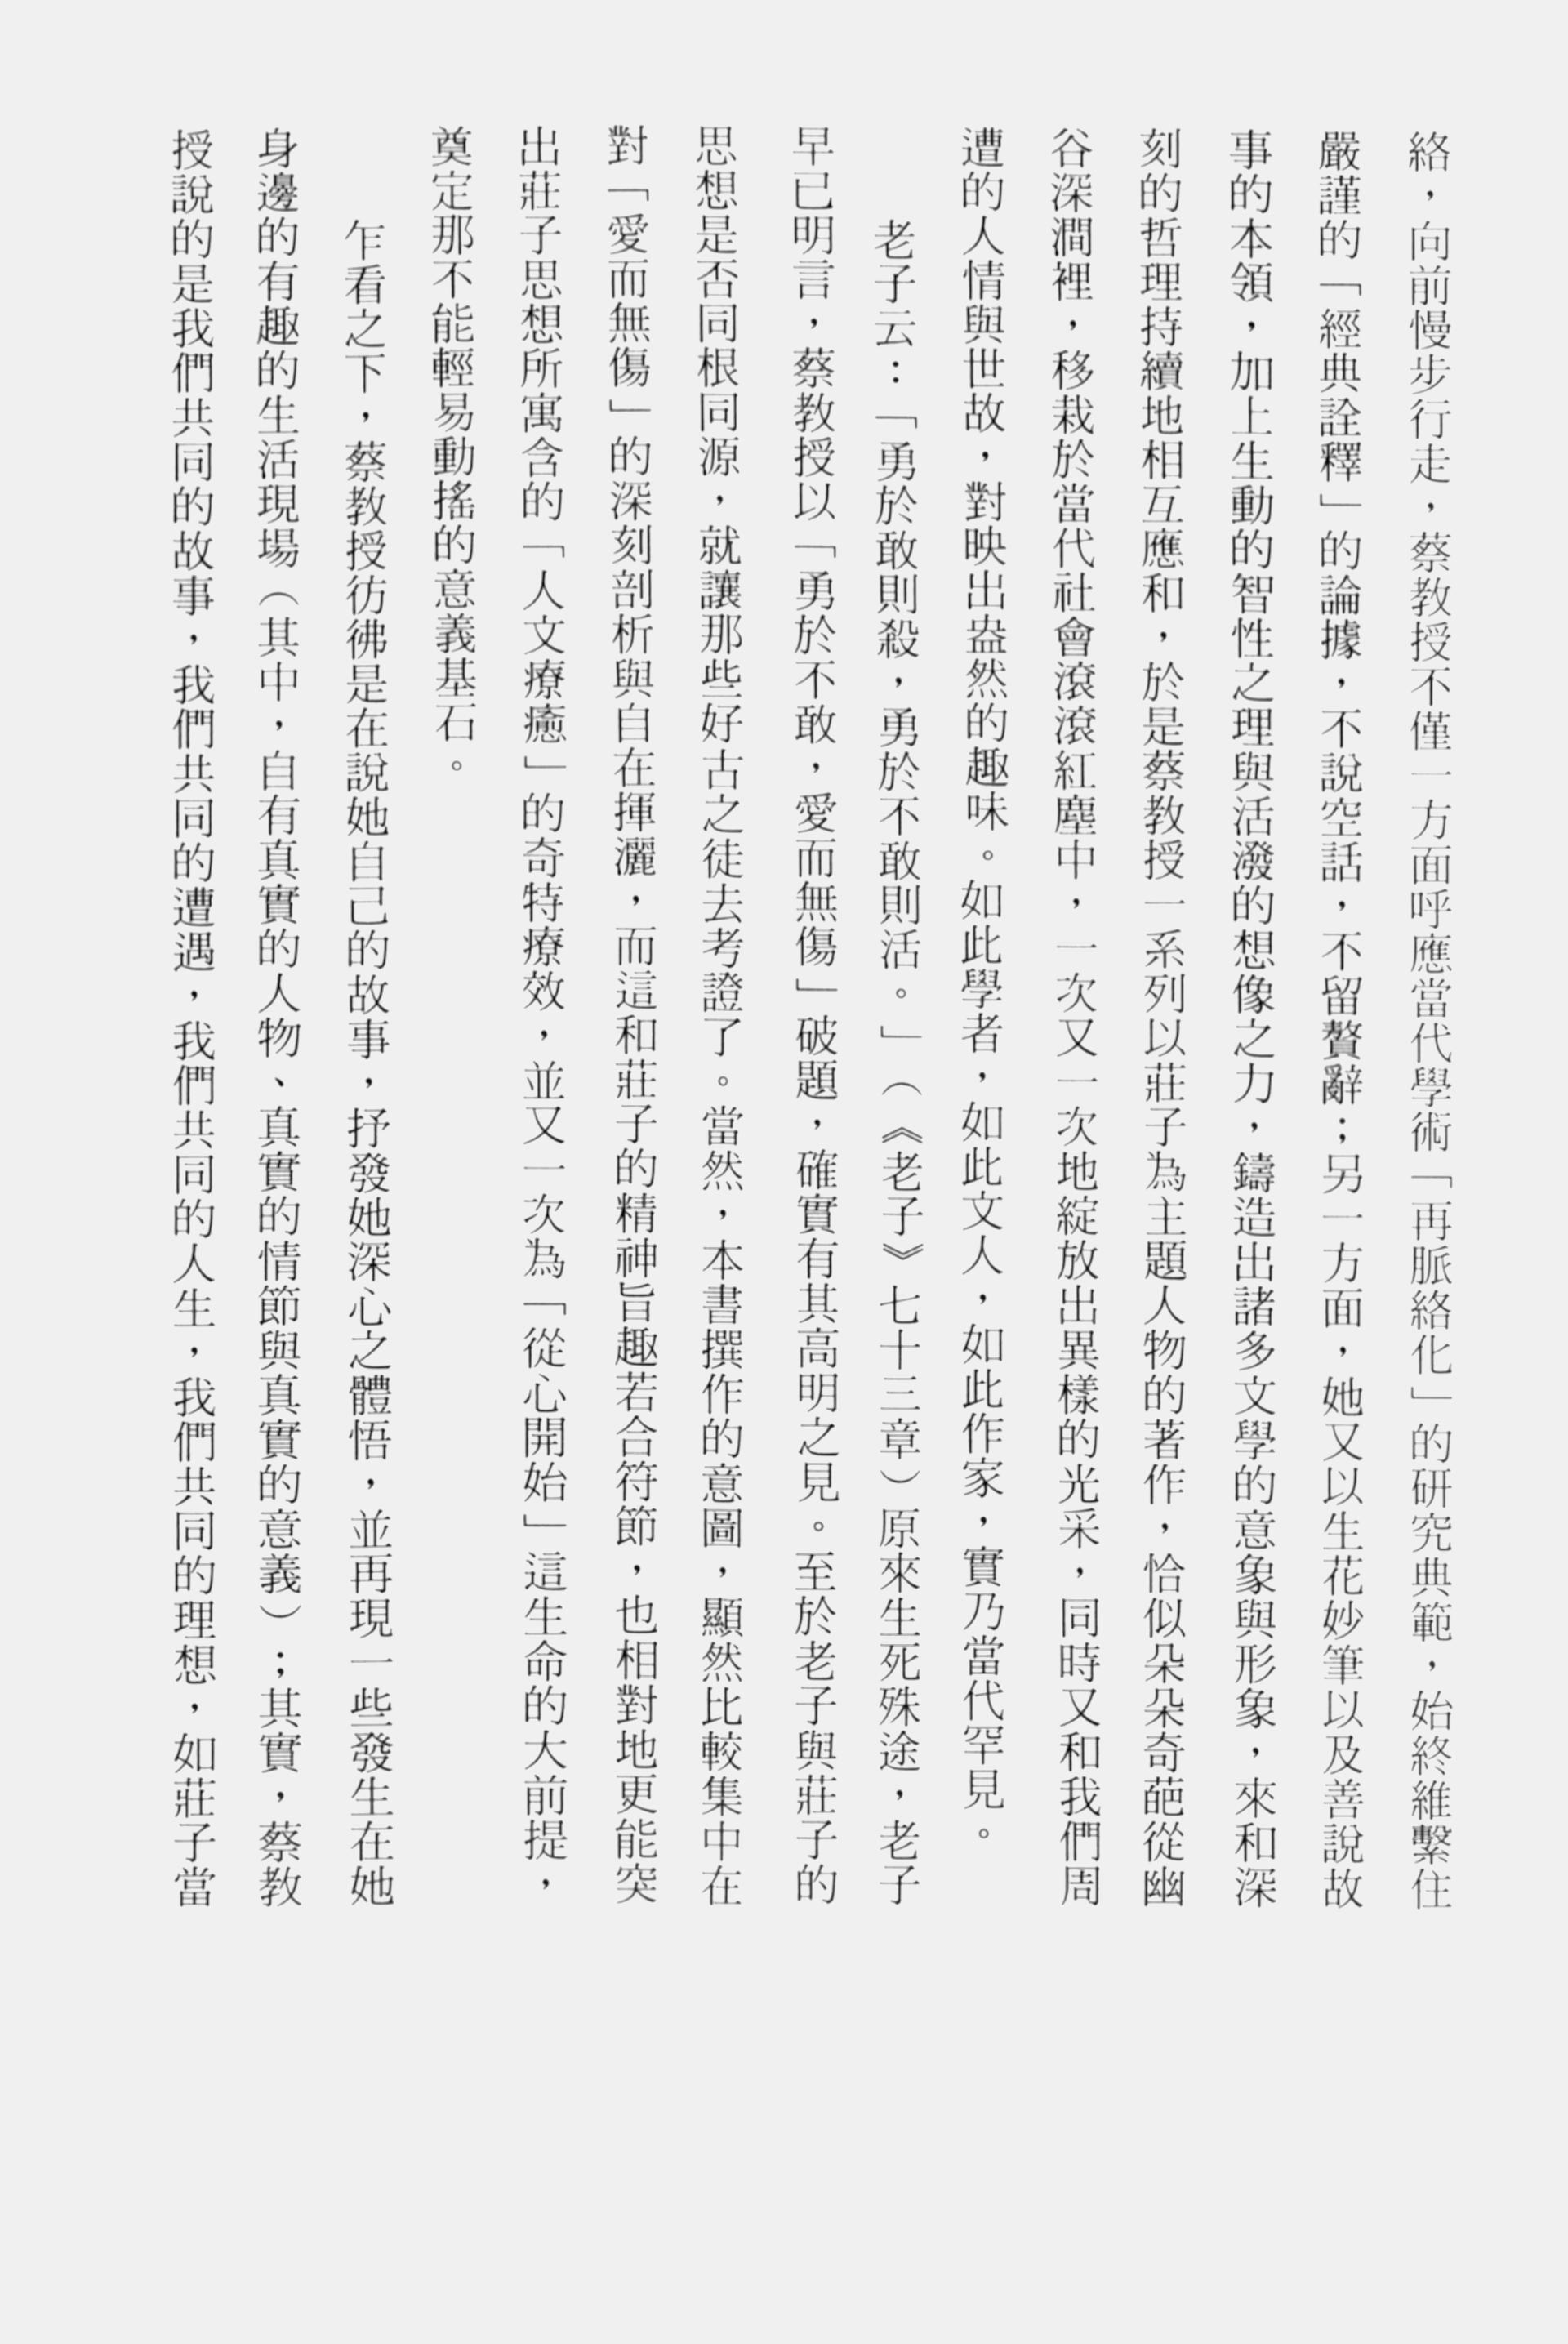 絡，向前慢步行走，蔡教授不僅一方面呼應當代學術「再脈絡化」的研究典範，始終維繫住
嚴謹的「經典詮釋」的論據，不說空話，不留贅辭；另一方面，她又以生花妙筆以及善說故
事的本領，加上生動的智性之理與活潑的想像之力，鑄造出諸多文學的意象與形象，來和深
刻的哲理持續地相互應和，於是蔡教授一系列以莊子為主題人物的著作，恰似朵朵奇葩從幽
谷深澗裡，移栽於當代社會滾滾紅塵中，一次又一次地綻放出異樣的光采，同時又和我們周
遭的人情與世故，對映出盎然的趣味。如此學者，如此文人，如此作家，實乃當代罕見。
老子云：「勇於敢則殺，勇於不敢則活。」（《老子》七十三章）原來生死殊途，老子
早已明言，蔡教授以「勇於不敢，愛而無傷」破題，確實有其高明之見。至於老子與莊子的
思想是否同根同源，就讓那些好古之徒去考證了。當然，本書撰作的意圖，顯然比較集中在
對「愛而無傷」的深刻剖析與自在揮灑，而這和莊子的精神旨趣若合符節，也相對地更能突
出莊子思想所寓含的「人文療癒」的奇特療效，並又一次為「從心開始」這生命的大前提，
奠定那不能輕易動搖的意義基石。
乍看之下，蔡教授彷彿是在說她自己的故事，抒發她深心之體悟，並再現一些發生在她
身邊的有趣的生活現場（其中，自有真實的人物、真實的情節與真實的意義）；其實，蔡教
授說的是我們共同的故事，我們共同的遭遇，我們共同的人生，我們共同的理想，如莊子當